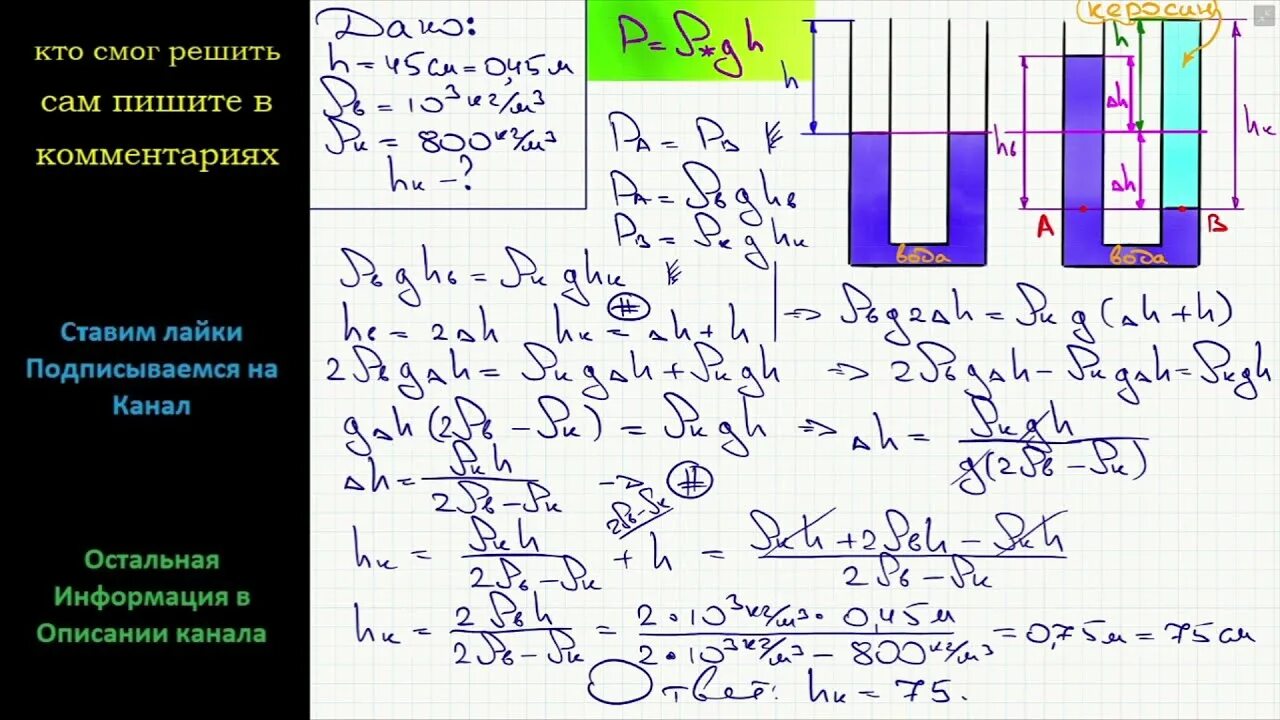 кто смог решить
сам пишите в
комментариях
Ставим лайки
Подписываемся на
Канал
Остальная
Информация в
Описании канала
Дано:
h = 45 см = 0,45 м
ρв = 10³ кг/м³
ρк = 800 кг/м³
hк - ?
P = ρ*gh
PA = PB
PA = ρв g hв
PB = ρк g hк
керосин
h
h
hв
Δh
Δh
hк
A
B
вода
вода
ρв g hв = ρк g hк
hв = 2Δh hк = Δh + h
#
=> ρв g 2Δh = ρк g (Δh + h)
2ρв g Δh = ρк g Δh + ρк g h => 2ρв g Δh - ρк g Δh = ρк g h
g Δh (2ρв - ρк) = ρк g h => Δh = ρк g h / g(2ρв - ρк)
Δh = ρк h / 2ρв - ρк -> #
hк = ρк h / 2ρв - ρк + h = ρк h + 2ρв h - ρк h / 2ρв - ρк
2ρв - ρк
hк = 2ρв h / 2ρв - ρк = 2 · 10³ кг/м³ · 0,45 м / 2 · 10³ кг/м³ - 800 кг/м³ = 0,75 м = 75 см
Ответ: hк = 75.